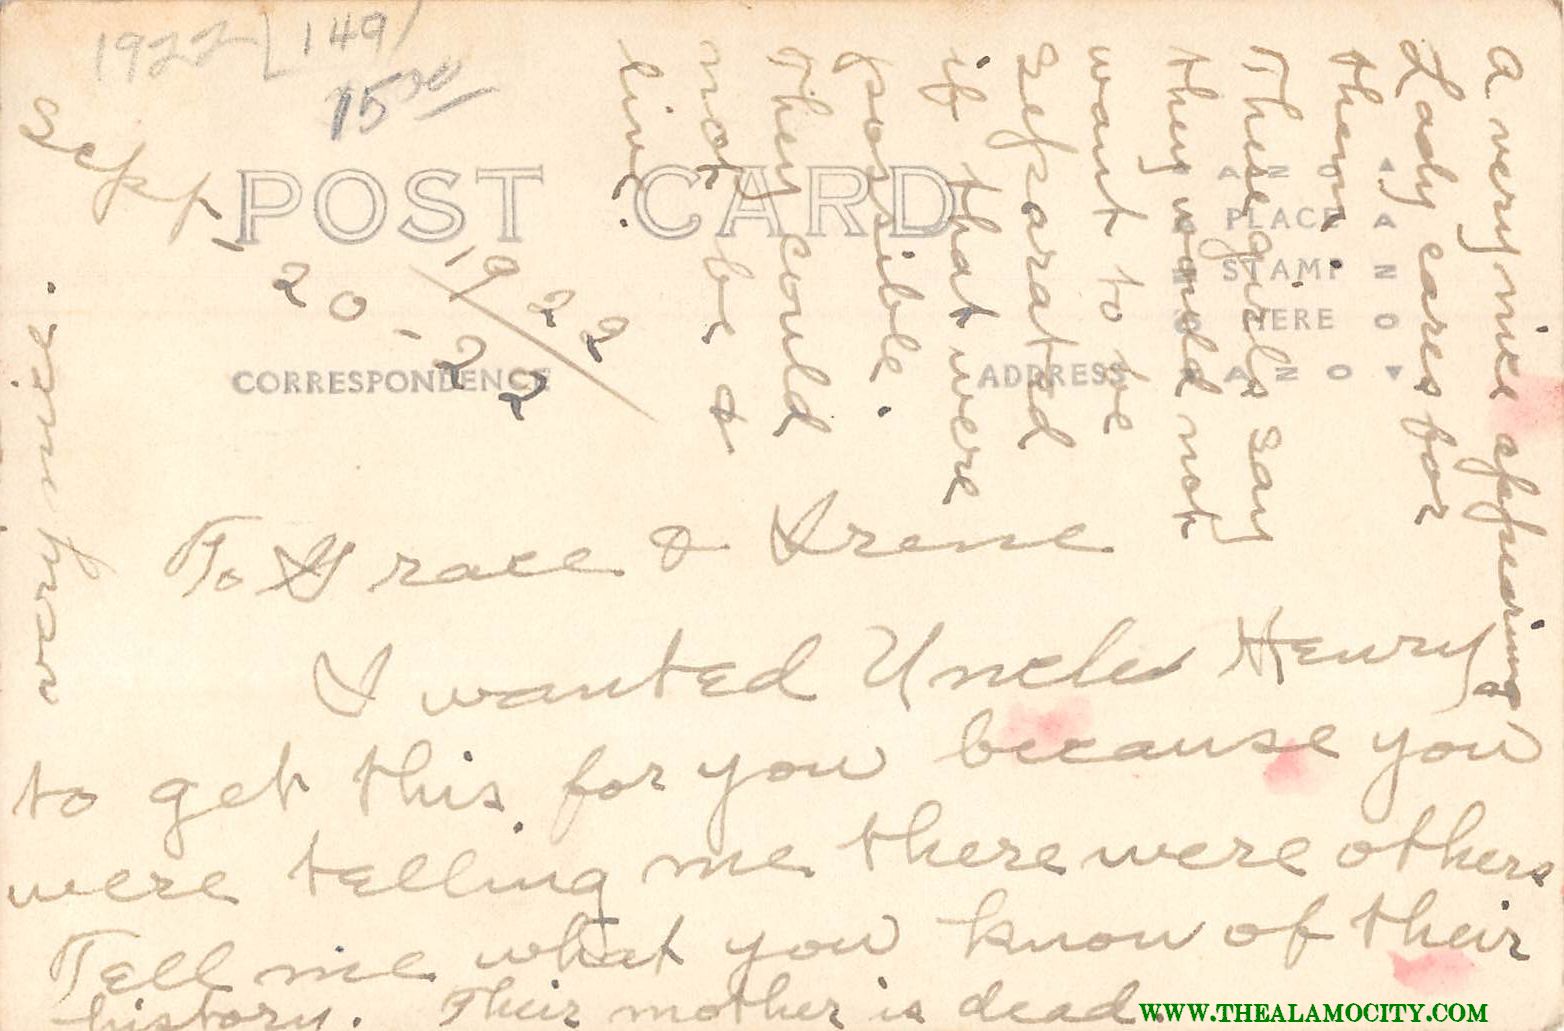 1922 149
15 00
Sept - 20 - 22
1922
POST CARD
CORRESPONDENCE
ADDRESS
AZO
PLACE
STAMP
HERE
AZO
To Grace & Irene
I wanted Uncle Henry
to get this for you because you
were telling me there were others
Tell me what you know of their
history. Their mother is dead.
A very nice appearing
Lady cares for
them.
These girls say
they would not
want to be
separated
if that were
possible.
They could
not be &
live.
very nice.
WWW.THEALAMOCITY.COM